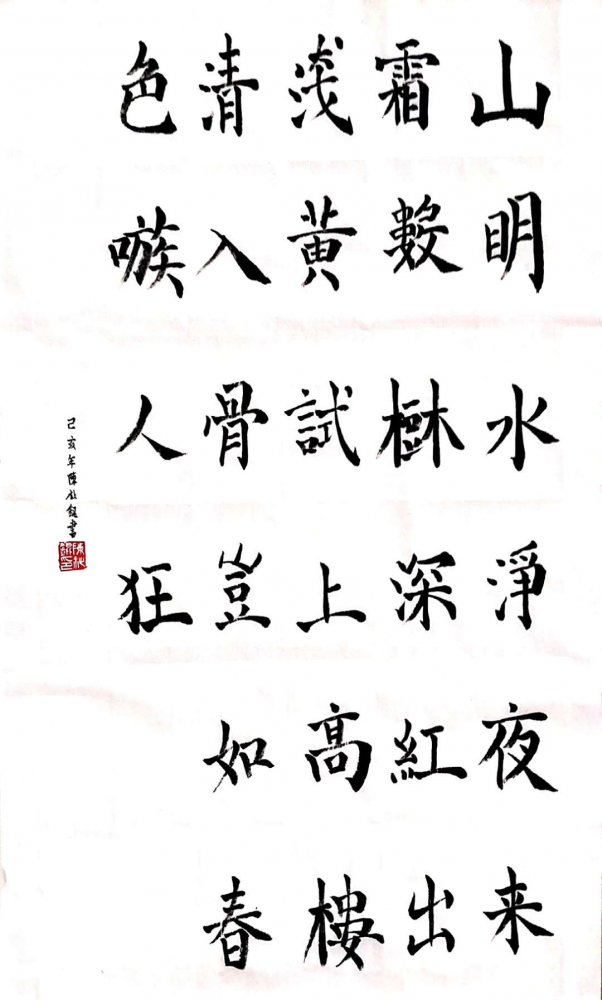 山明水淨夜来
霜數樹深紅出
浅黄試上高樓
清入骨豈如春
色嗾人狂
己亥年陳書